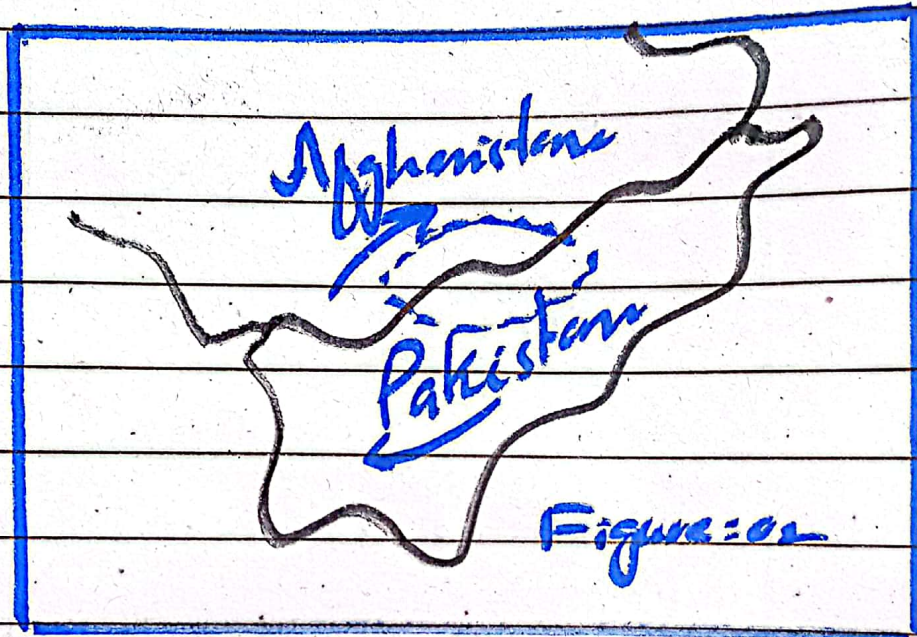 Afghanistan
Pakistan
Figure:02